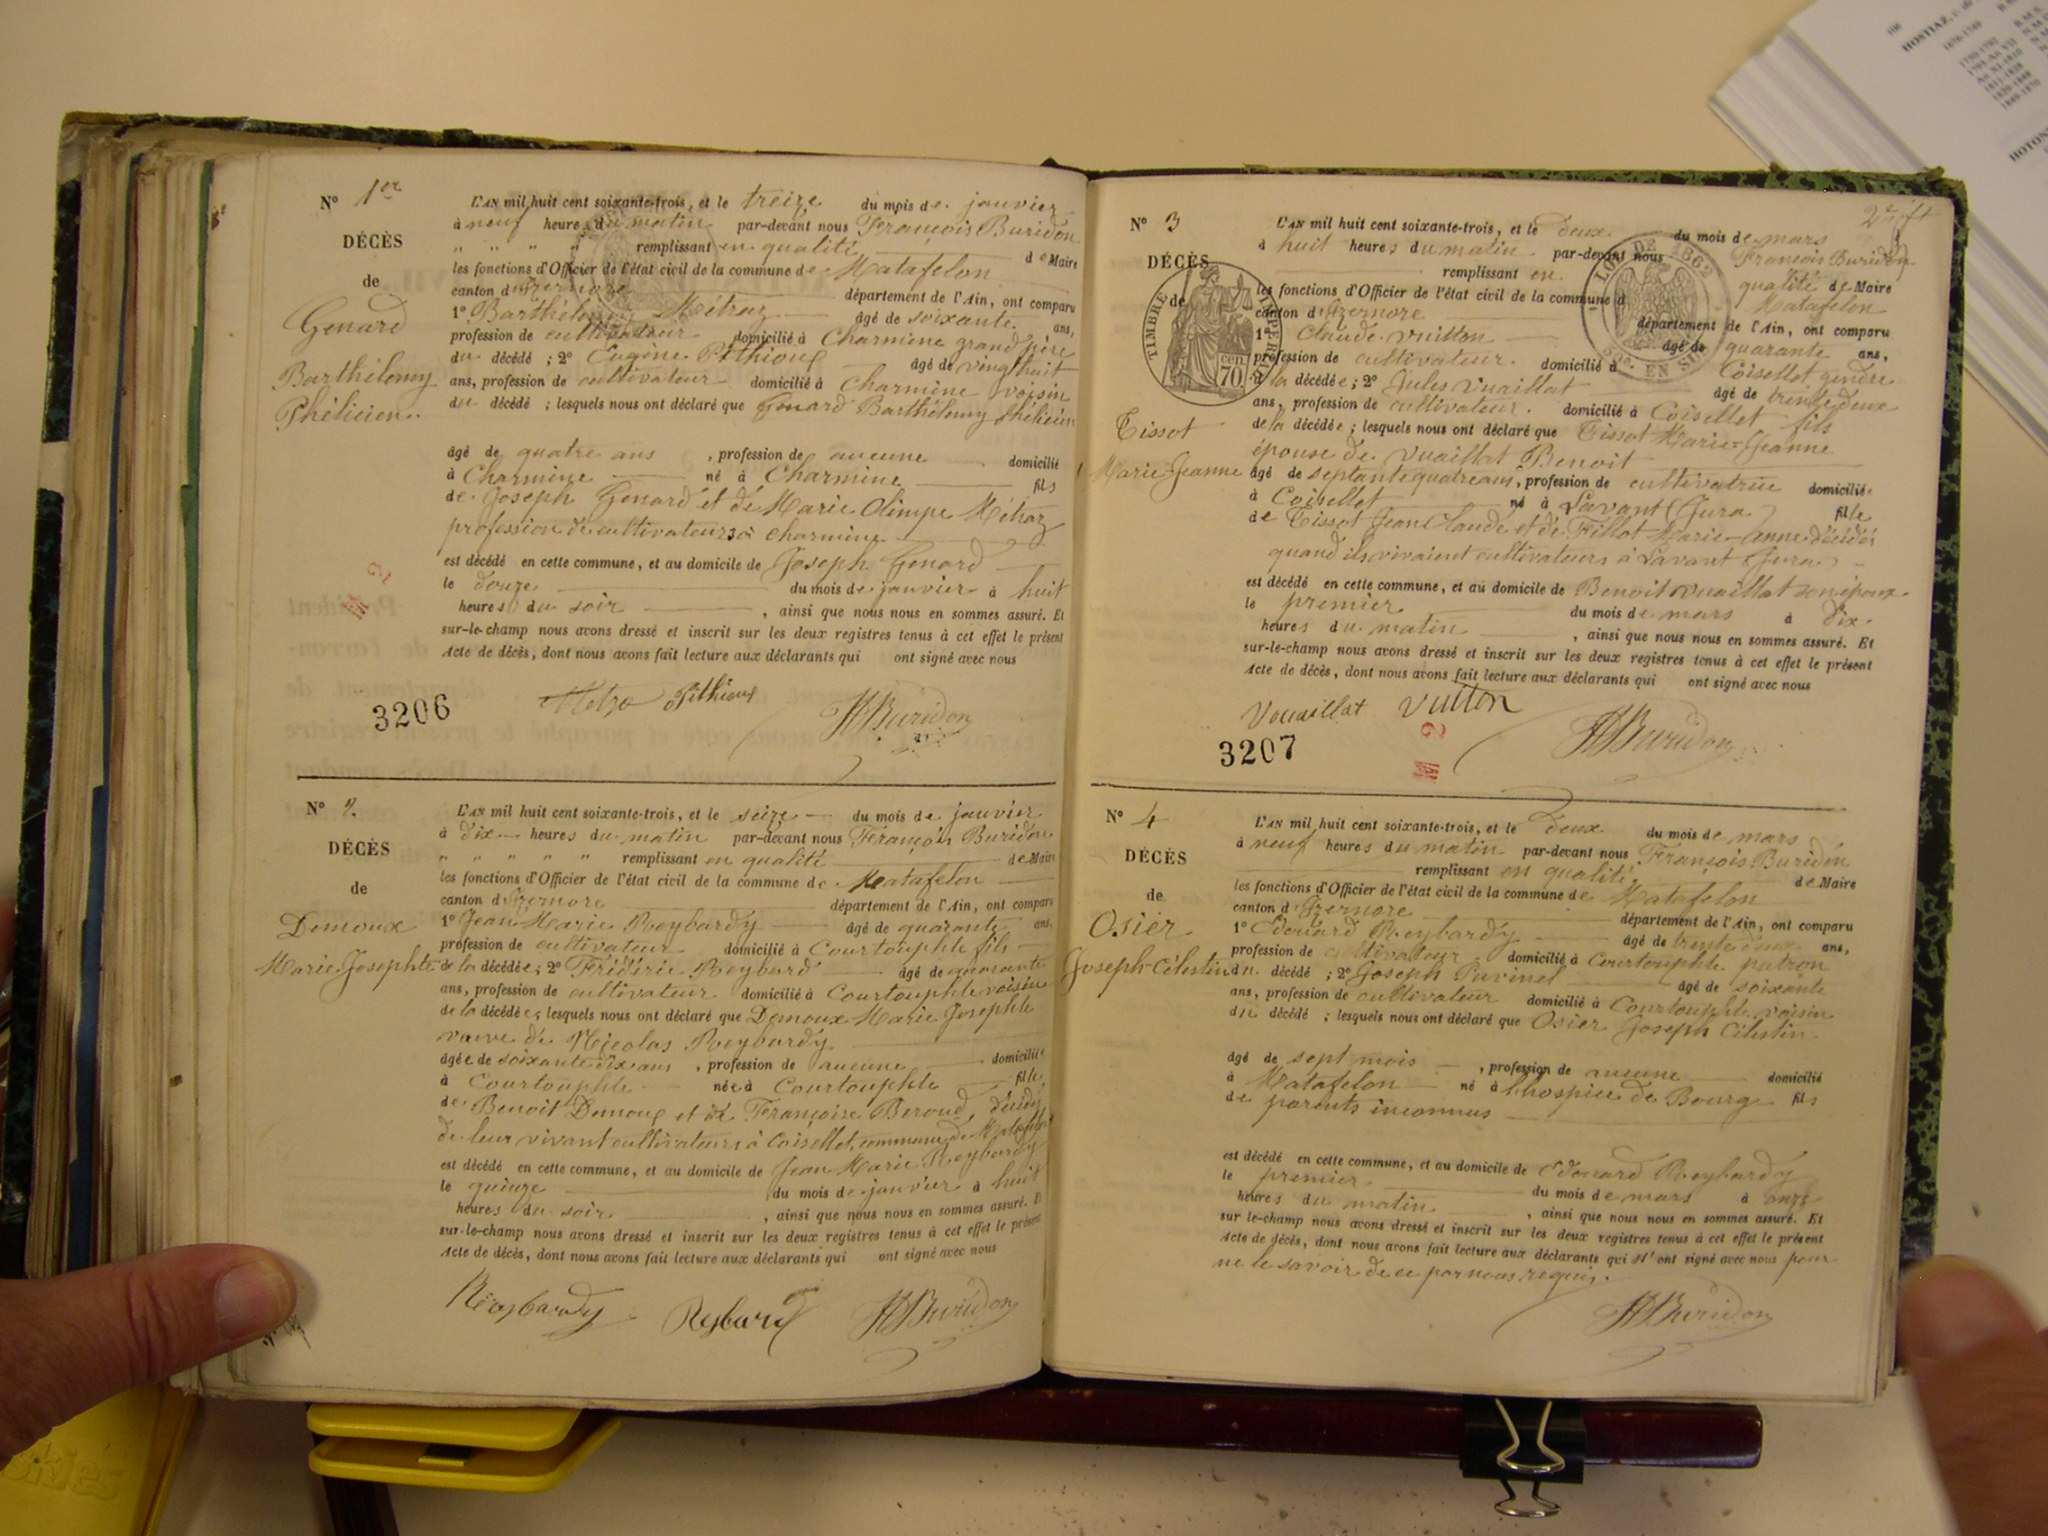 N° 1er
DÉCÈS
de
Genard
Barthélemy
Phélicien.
L'AN mil huit cent soixante-trois, et le treize du mois de janvier
à neuf heures du matin par-devant nous François Buridon
" " " " remplissant en qualité de Maire
les fonctions d'Officier de l'état civil de la commune de Matafelon
canton d'Izernore département de l'Ain, ont comparu
1° Barthélemy Métraz âgé de soixante ans,
profession de cultivateur domicilié à Charmine grand père
du décédé ; 2° Eugène Pithioux âgé de vingt huit
ans, profession de cultivateur domicilié à Charmine voisin
du décédé ; lesquels nous ont déclaré que Genard Barthélemy Phélicien
âgé de quatre ans , profession de aucune domicilié
à Charmine né à Charmine fils
de Joseph Genard et de Marie Olimpe Métraz
profession de cultivateurs à Charmine
est décédé en cette commune, et au domicile de Joseph Genard
le douze du mois de janvier à huit
heures du soir , ainsi que nous nous en sommes assuré. Et
sur-le-champ nous avons dressé et inscrit sur les deux registres tenus à cet effet le présent
Acte de décès, dont nous avons fait lecture aux déclarants qui ont signé avec nous
Pithioux Buridon
3206
N° 2
DÉCÈS
de
Demoux
Marie Josephte
L'AN mil huit cent soixante-trois, et le seize du mois de janvier
à dix heures du matin par-devant nous François Buridon
" " " " " remplissant en qualité de Maire
les fonctions d'Officier de l'état civil de la commune de Matafelon
canton d'Izernore département de l'Ain, ont comparu
1° Jean Marie Reybardy âgé de quarante ans,
profession de cultivateur domicilié à Courtouphle fils
de la décédée ; 2° Frédéric Reybard âgé de quarante
ans, profession de cultivateur domicilié à Courtouphle voisin
de la décédée ; lesquels nous ont déclaré que Demoux Marie Josephte
veuve de Nicolas Reybardy
âgée de soixante dix ans , profession de aucune domiciliée
à Courtouphle née à Courtouphle fille
de Benoit Demoux et de Françoise Beroud, décédés
de leur vivant cultivateurs à Coisellet, commune de Matafelon
est décédé en cette commune, et au domicile de Jean Marie Reybardy
le quinze du mois de janvier à huit
heures du soir , ainsi que nous nous en sommes assuré. Et
sur-le-champ nous avons dressé et inscrit sur les deux registres tenus à cet effet le présent
Acte de décès, dont nous avons fait lecture aux déclarants qui ont signé avec nous
Reybardy Reybard Buridon
2e ft
N° 3
DÉCÈS
de
Tissot
Marie-Jeanne
TIMBRE IMPERIAL
70 cen
LOI DE 1862
EN SUS
L'AN mil huit cent soixante-trois, et le deux du mois de mars
à huit heures du matin par-devant nous François Buridon
remplissant en qualité de Maire
les fonctions d'Officier de l'état civil de la commune d Matafelon
canton d'Izernore département de l'Ain, ont comparu
1° Claude Vuitton âgé de quarante ans,
profession de cultivateur domicilié à Coisellet gendre
d la décédée ; 2° Jules Vuaillat âgé de trente deux
ans, profession de cultivateur. domicilié à Coisellet fils
de la décédée ; lesquels nous ont déclaré que Tissot Marie-Jeanne
épouse de Vuaillat Benoit
âgé de septante quatre ans, profession de cultivatrice domiciliée
à Coisellet né à Lavant (Jura) fille
de Tissot Jean Claude et de Fillot Marie-Anne décédés
quand ils vivaient cultivateurs à Lavant (Jura)
est décédé en cette commune, et au domicile de Benoit Vuaillat son époux
le premier du mois de mars à dix
heures du matin , ainsi que nous nous en sommes assuré. Et
sur-le-champ nous avons dressé et inscrit sur les deux registres tenus à cet effet le présent
Acte de décès, dont nous avons fait lecture aux déclarants qui ont signé avec nous
Vouaillat Vuitton Buridon
3207
N° 4
DÉCÈS
de
Osier
Joseph-Célestin
L'AN mil huit cent soixante-trois, et le deux du mois de mars
à neuf heures du matin par-devant nous François Buridon
remplissant en qualité de Maire
les fonctions d'Officier de l'état civil de la commune de Matafelon
canton d'Izernore département de l'Ain, ont comparu
1° Edouard Reybardy âgé de trente deux ans,
profession de cultivateur domicilié à Courtouphle patron
du décédé ; 2° Joseph Puvinel âgé de soixante
ans, profession de cultivateur domicilié à Courtouphle voisin
du décédé ; lesquels nous ont déclaré que Osier Joseph Célestin
âgé de sept mois , profession de aucune domicilié
à Matafelon né à l'hospice de Bourg fils
de parents inconnus
est décédé en cette commune, et au domicile de Edouard Reybardy
le premier du mois de mars à onze
heures du matin , ainsi que nous nous en sommes assuré. Et
sur le-champ nous avons dressé et inscrit sur les deux registres tenus à cet effet le présent
Acte de décès, dont nous avons fait lecture aux déclarants qui n'ont signé avec nous pour
ne le savoir de ce par nous requis.
Buridon
HOSTIAZ